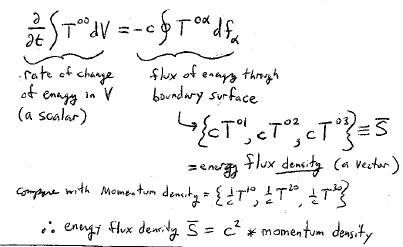 ∂/∂t ∫ T⁰⁰ dV = -c ∮ T⁰ᵅ df_α
rate of change of energy in V (a scalar)
flux of energy through boundary surface
↳ {cT⁰¹, cT⁰², cT⁰³} ≡ S̄
= energy flux density (a vector)
compare with Momentum density = {1/c T¹⁰, 1/c T²⁰, 1/c T³⁰}
∴ energy flux density S̄ = c² * momentum density